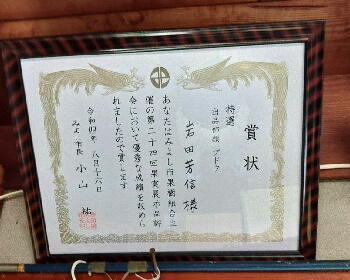 賞状
特選
出品物 ブドウ
岩田芳信様
あなたはみよし市果樹組合主
催の第二十四回果実展示品評
会において優秀な成績を収めら
れましたので賞します
令和四年八月十八日
みよし市長 小山 祐